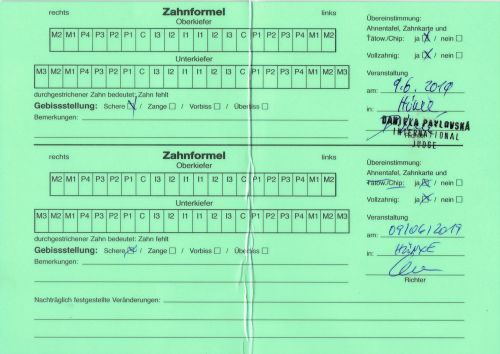 rechts Zahnformel links
Oberkiefer
M2 M1 P4 P3 P2 P1 C I3 I2 I1 I1 I2 I3 C P1 P2 P3 P4 M1 M2
Unterkiefer
M3 M2 M1 P4 P3 P2 P1 C I3 I2 I1 I1 I2 I3 C P1 P2 P3 P4 M1 M2 M3
durchgestrichener Zahn bedeutet: Zahn fehlt
Gebissstellung: Schere / Zange / Vorbiss / Überbiss
Bemerkungen:
Übereinstimmung:
Ahnentafel, Zahnkarte und
Tätow./Chip: ja / nein
Vollzahnig: ja / nein
Veranstaltung
am: 9.6.2019
in:
DANIELA PAVLOVSKÁ
INTERNATIONAL
JUDGE
rechts Zahnformel links
Oberkiefer
M2 M1 P4 P3 P2 P1 C I3 I2 I1 I1 I2 I3 C P1 P2 P3 P4 M1 M2
Unterkiefer
M3 M2 M1 P4 P3 P2 P1 C I3 I2 I1 I1 I2 I3 C P1 P2 P3 P4 M1 M2 M3
durchgestrichener Zahn bedeutet: Zahn fehlt
Gebissstellung: Schere / Zange / Vorbiss / Überbiss
Bemerkungen:
Nachträglich festgestellte Veränderungen:
Übereinstimmung:
Ahnentafel, Zahnkarte und
Tätow./Chip: ja / nein
Vollzahnig: ja / nein
Veranstaltung
am: 09/06/2019
in: HÜNXE
Richter